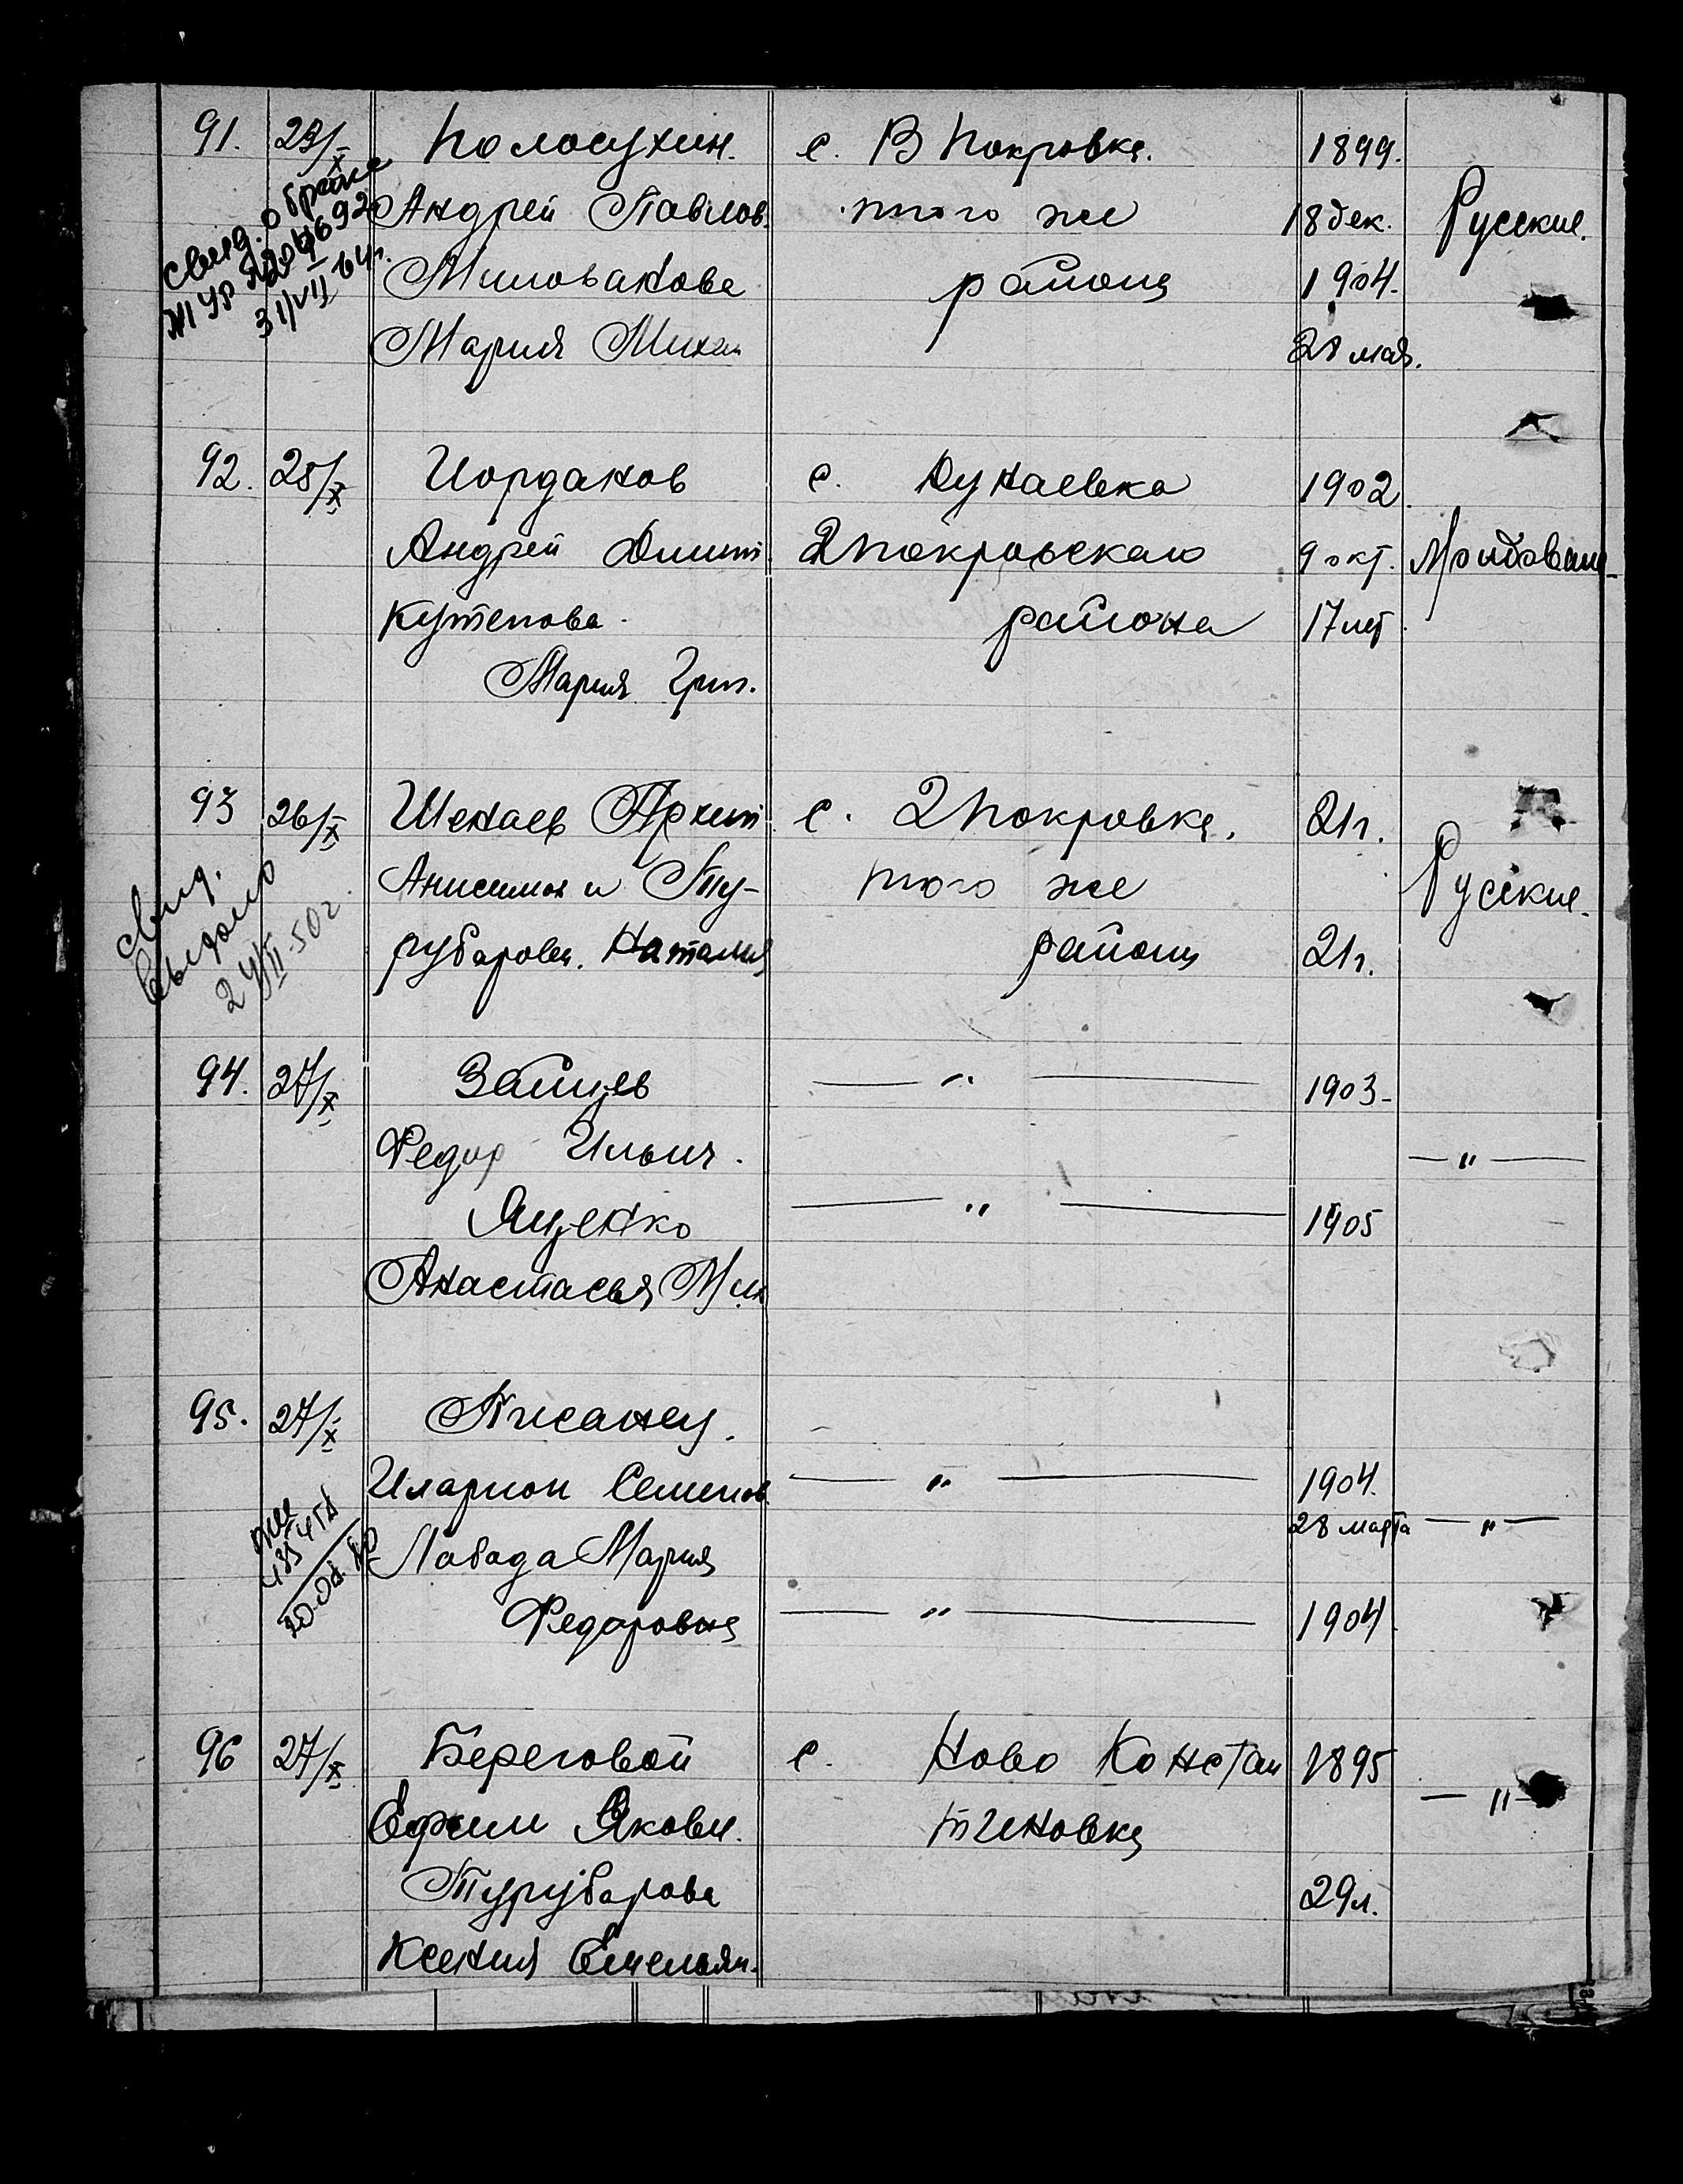 91. 23/X Полосухин. с. В Покровка. 1899.
Андрей Павлов. того же 18 дек. Русские.
Милованова района 1904.
Мария Михаи 28 мая.
Свид. о браке
31/VII 64 г.
92. 25/X Иорданов с. Дунаевка 1902.
Андрей Дмит. 2 Покровскаго 9 окт. Молдован
Кутепова. района 17 лет
Мария Григ.
93 26/X Шенаев Архип с. 2 Покровка. 21 г.
Анисимов и Ту- того же Русские.
рубарова. Наталия района 21 г.
Свид.
выдано
24/II-50 г.
94. 27/X Зайцев — " — 1903-
Федор Ильич. — " —
Яценко — " — 1905
Анастасья Мих
95. 27/X Писанец.
Иларион Семенов. — " — 1904.
28 марта — " —
Лобода Мария
Федоровна — " — 1904
96 27/X Береговой с. Ново Констан 1895
Ефим Яковл. тиновка — " —
Турубарова 29 л.
Ксения Емельян.